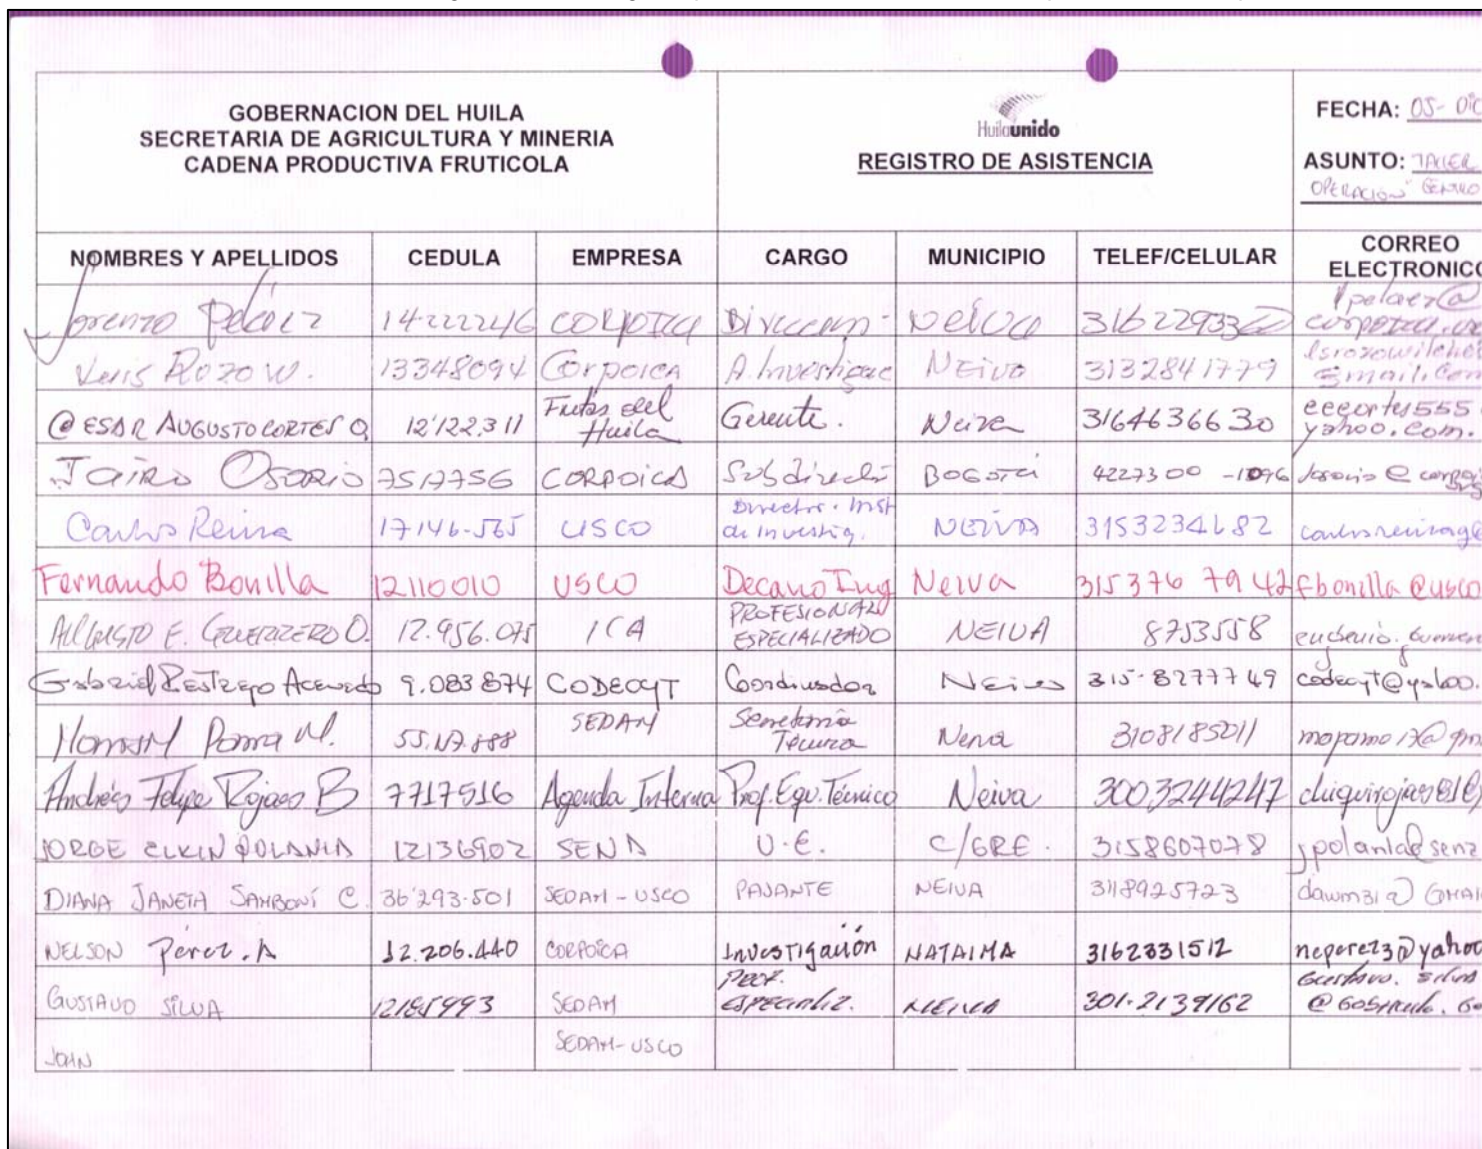 GOBERNACION DEL HUILA
SECRETARIA DE AGRICULTURA Y MINERIA
CADENA PRODUCTIVA FRUTICOLA
Huilaunido
REGISTRO DE ASISTENCIA
FECHA: 05- DIC
ASUNTO: TALLER
OPERACIÓN CENTRO
NOMBRES Y APELLIDOS CEDULA EMPRESA CARGO MUNICIPIO TELEF/CELULAR CORREO ELECTRONICO
Lorenzo Peláez 14222246 CORPOICA Neiva lpelaez@
Luis Rozo W. 13348094 Corpoica A. Neiva 3132841779
CESAR AUGUSTO CORTES O 12'122.311 Frutas del Huila Gerente. Neiva 3164636630 yahoo.com.
Jairo Osorio 7517756 CORPOICA BOGOTÁ 4227300 -1096
Carlos Reina 17146-565 USCO Director. Inst de Investig. NEIVA 3153234682
Fernando Bonilla 12110010 USCO Decano Ing Neiva 315 376 79 42 fbonilla@usco
AUGUSTO E. GUERRERO O. 12.956.075 ICA PROFESIONAL ESPECIALIZADO NEIVA 8753558
Gabriel Restrepo Acevedo 9.083874 CODECYT Coordinador Neiva 315-8277749 codecyt@yahoo.
SEDAM Secretaria Técnica Neiva 3108185011
Andrés Felipe Rojas B 7717516 Agenda Interna Prof. Equ. Técnico Neiva 3003244247
JORGE ELKIN POLANIA 12136902 SENA U.E. C/GRE. 3158607078 jpolania@sena
DIANA JANETH SAMBONÍ C. 36'293.501 SEDAM - USCO PASANTE NEIVA 3118925723
NELSON Pérez. A 12.206.440 CORPOICA Investigación NATAIMA 3162331512 neperez3@yahoo
GUSTAVO SILVA SEDAM PROF. ESPECIALIZ. NEIVA 301-2139162 Gustavo. Silva
JOHN SEDAM-USCO